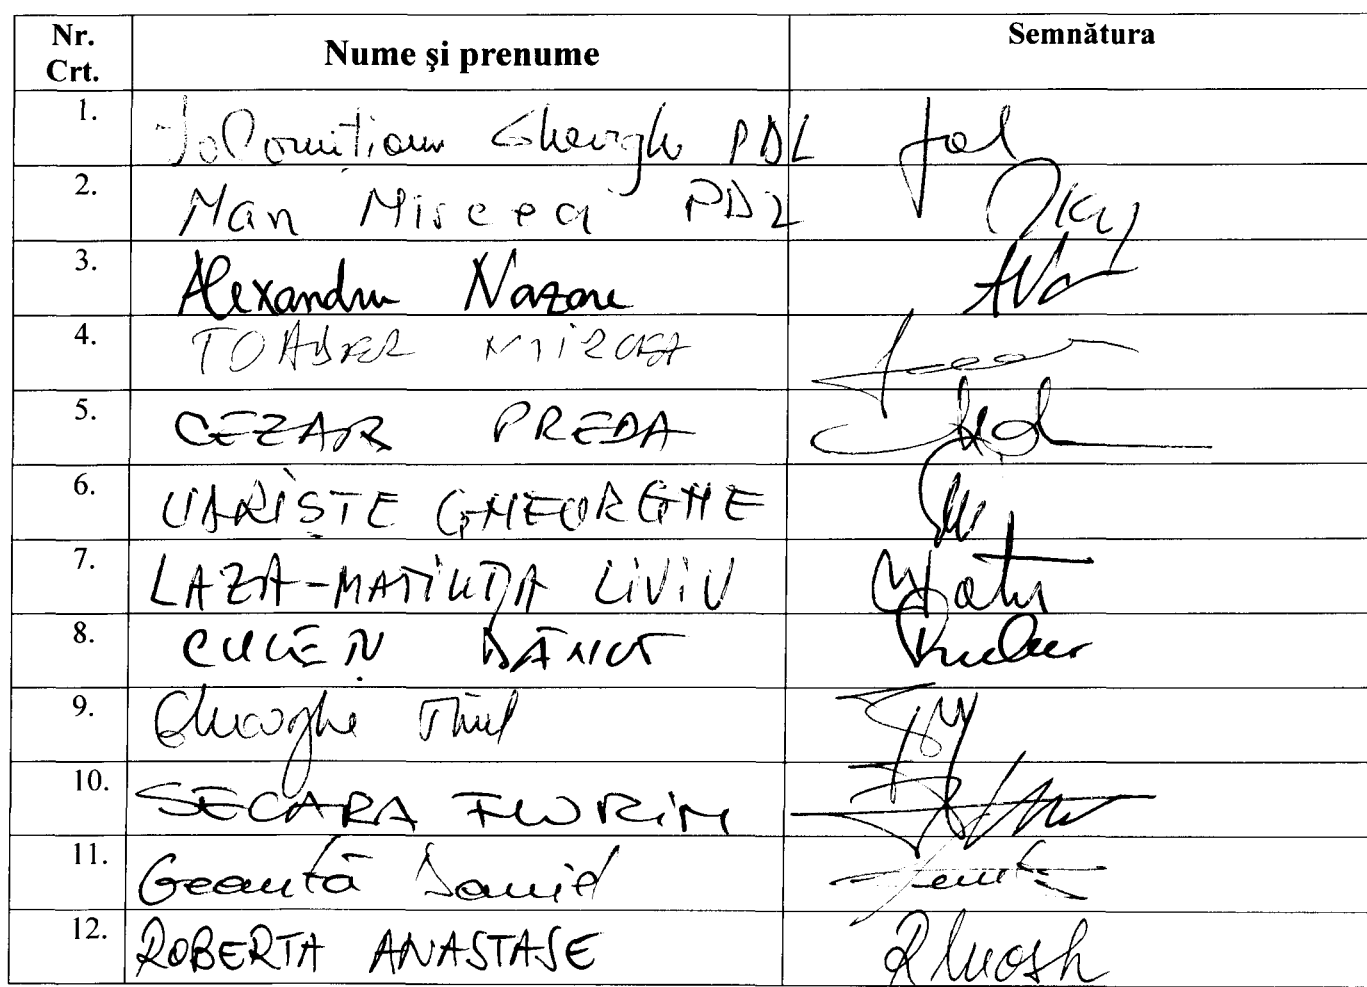 Nr. Crt. Nume şi prenume Semnătura
1. Ialomiţianu Gheorghe PDL
2. Man Mircea PDL
3. Alexandru Nazare
4. TOADER MIRCEA
5. CEZAR PREDA
6. UDRIŞTE GHEORGHE
7. LAZA-MATIUŢA LIVIU
8. CULEŢU DĂNUŢ
9. Gheorghe
10. SECARA FLORIN
11. Geantă Daniel
12. ROBERTA ANASTASE